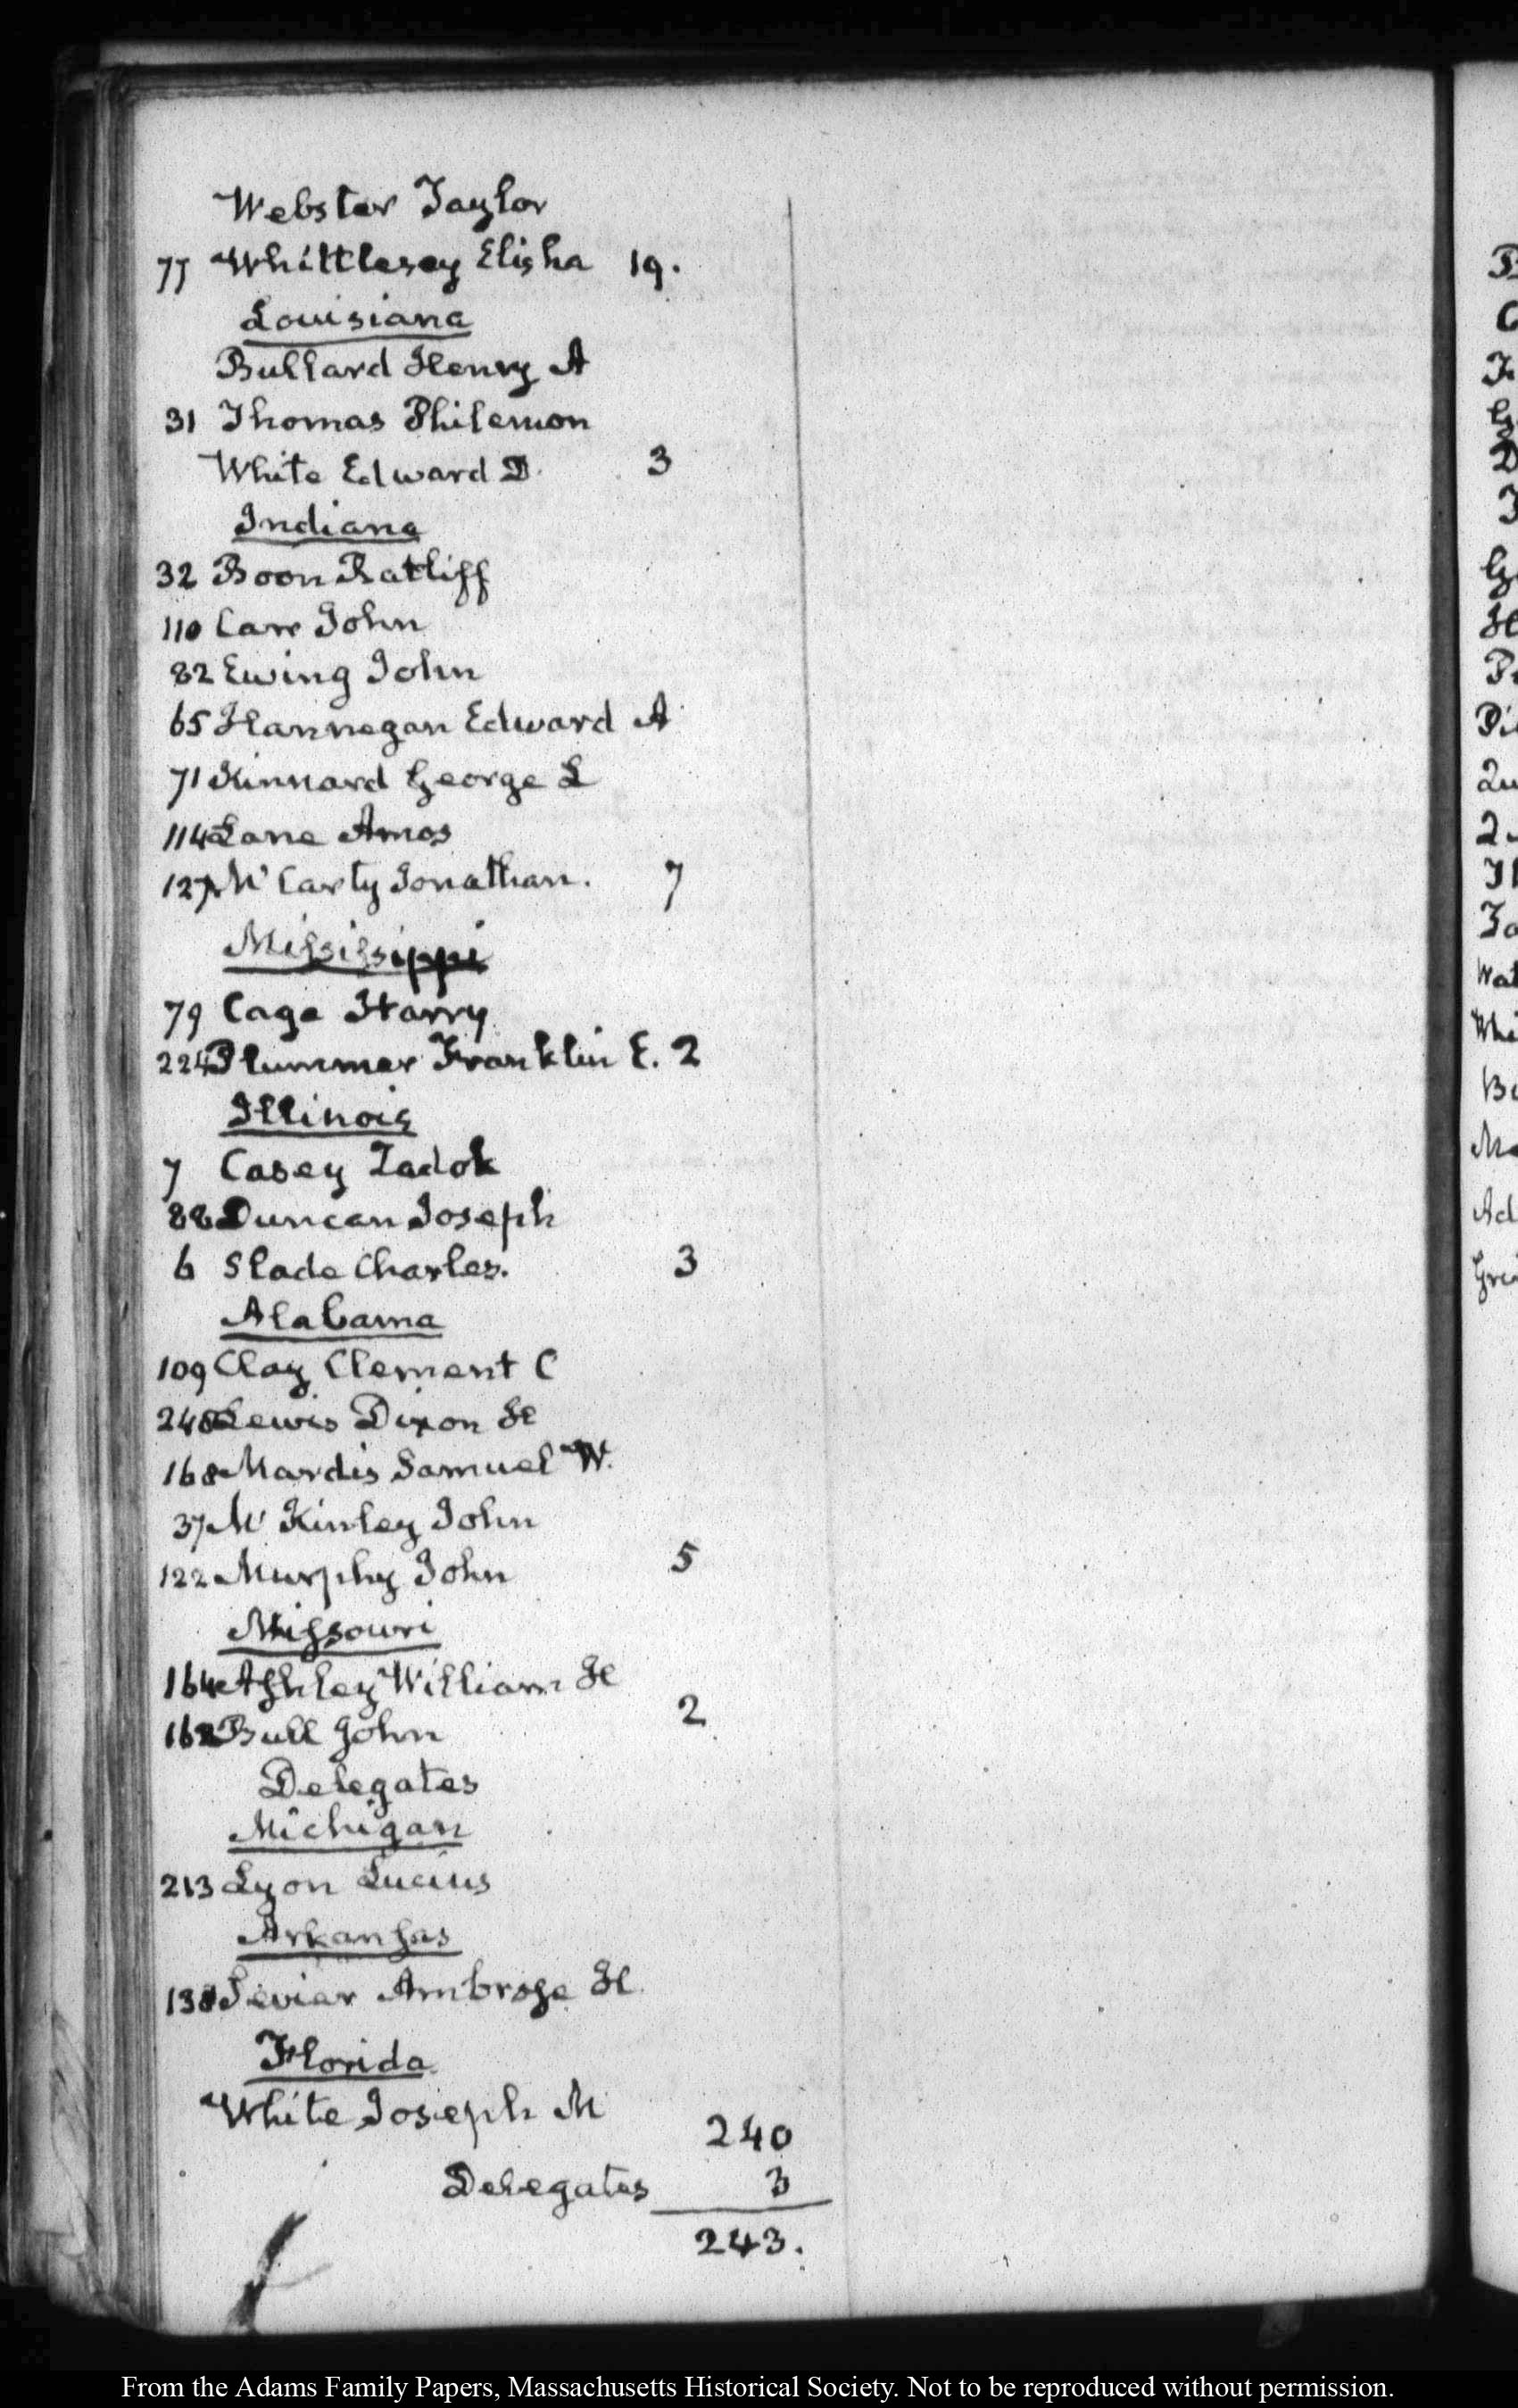 Webster Taylor
77 Whittlesey Elisha 19.
Louisiana
Bullard Henry A
31 Thomas Philemon
White Edward D. 3
Indiana
32 Boon Ratliff
110 Carr John
82 Ewing John
65 Hannegan Edward A
71 Kinnard George L
114 Lane Amos
127 McCarty Jonathan. 7
Mississippi
79 Cage Harry
224 Plummer Franklin E. 2
Illinois
7 Casey Zadok
88 Duncan Joseph
6 Slade Charles. 3
Alabama
109 Clay Clement C
248 Lewis Dixon H
168 Mardis Samuel W.
37 Mc Kinley John
122 Murphy John 5
Missouri
164 Ashley William H
162 Bull John 2
Delegates
Michigan
213 Lyon Lucius
Arkansas
Sevier Ambrose H.
Florida
White Joseph M
240
Delegates 3
243.
From the Adams Family Papers, Massachusetts Historical Society. Not to be reproduced without permission.